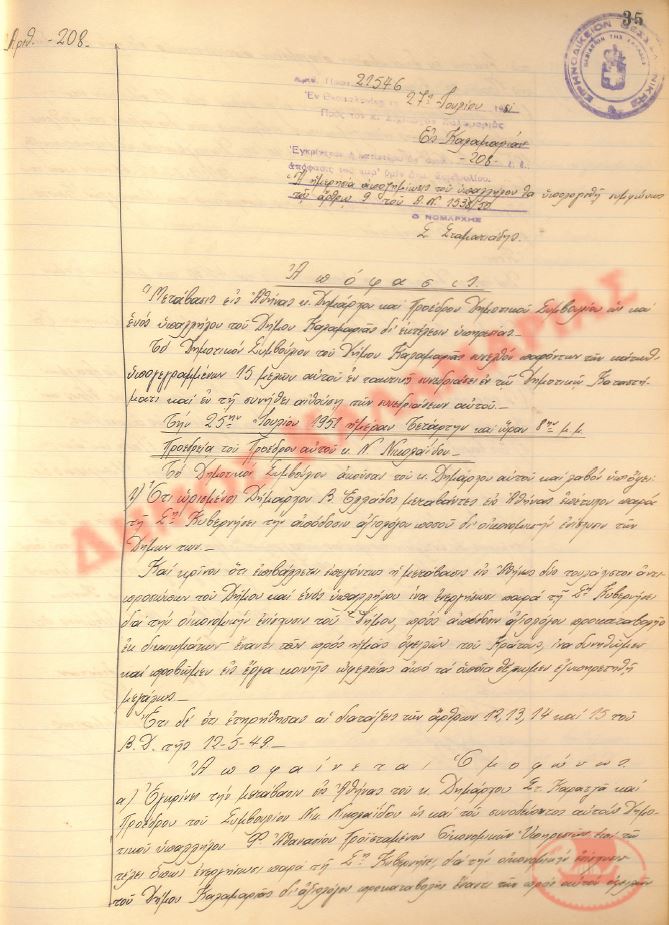 35
Αριθ. - 208 -
ΕΙΡΗΝΟΔΙΚΕΙΟΝ ΘΕΣΣΑΛΟΝΙΚΗΣ
Αριθ. Πρωτ. 21546
Ἐν Θεσσαλονίκῃ τῇ 27ῃ Ἰουλίου 1951
Πρὸς τὸν κ. Δήμαρχον Καλαμαριᾶς
Εἰς Καλαμαριάν
Ἐγκρίνεται ἡ ὑπ' ἀριθ. -208-
ἀπόφασις τοῦ Δημ. Συμβουλίου.
Ἡ ἡμερησία ἀποζημίωσις τοῦ ὑπαλλήλου θὰ ὑπολογισθῇ συμφώνως
τῷ ἄρθρῳ 9 τοῦ Α.Ν. 1538/50
Ο ΝΟΜΑΡΧΗΣ
Σ. Σταματιάδης
Ἀπόφασις.
Μετάβασις εἰς Ἀθήνας κ. Δημάρχου καὶ Προέδρου Δημοτικοῦ Συμβουλίου ὡς καὶ
ἑνὸς ὑπαλλήλου τοῦ Δήμου Καλαμαριᾶς δι' ἐκτέλεσιν ὑπηρεσίας.
Τὸ Δημοτικὸν Συμβούλιον τοῦ Δήμου Καλαμαριᾶς συνελθὸν παρόντων τῶν κάτωθι
ὑπογεγραμμένων 15 μελῶν αὐτοῦ ἐν τακτικῇ συνεδριάσει ἐν τῷ Δημοτικῷ Καταστή-
ματι καὶ ἐν τῇ συνήθει αἰθούσῃ τῶν συνεδριάσεων αὐτοῦ.-
Τὴν 25ην Ἰουλίου 1951 ἡμέραν Τετάρτην καὶ ὥραν 8ην μ.μ.
Προεδρείᾳ τοῦ Προέδρου αὐτοῦ κ. Ν. Νικολαΐδου.-
Τὸ Δημοτικὸν Συμβούλιον ἀκοῦσαν τοῦ κ. Δημάρχου αὐτοῦ καὶ λαβὸν ὑπ' ὄψει:
1) Ὅτι ὡρισμένοι Δήμαρχοι Β. Ἑλλάδος μεταβάντες εἰς Ἀθήνας ἐπέτυχον παρὰ
τῇ Σῃ Κυβερνήσει τὴν ἀπόδοσιν ἀξιολόγου ποσοῦ δι' οἰκονομικὴν ἐνίσχυσιν τῶν
Δήμων των.-
Καὶ κρῖνον ὅτι ἐπιβάλλεται ἐπειγόντως ἡ μετάβασις εἰς Ἀθήνας δύο τουλάχιστον ἀντι-
προσώπων τοῦ Δήμου καὶ ἑνὸς ὑπαλλήλου ἵνα ἐνεργήσουν παρὰ τῇ Σῃ Κυβερνήσει
διὰ τὴν οἰκονομικὴν ἐνίσχυσιν τοῦ Δήμου, πρὸς ἀπόδοσιν ἀξιολόγου προκαταβολῆς
ἐκ δικαιωμάτων ἔναντι τῶν πρὸς ἡμᾶς ὀφειλῶν τοῦ Κράτους, ἵνα δυνηθῶμεν
καὶ προβῶμεν εἰς ἔργα κοινῆς ὠφελείας ἀπὸ τὰ ὁποῖα θέλομεν ἐξυπηρετηθῆ
μεγάλως.-
Ἔτι δὲ ὅτι ἐτηρήθησαν αἱ διατάξεις τῶν ἄρθρων 12, 13, 14 καὶ 15 τοῦ
Β.Δ. τῆς 12-5-49.-
Ἀποφαίνεται Ὁμοφώνως
α) Ἐγκρίνει τὴν μετάβασιν εἰς Ἀθήνας τοῦ κ. Δημάρχου Στ. Καρατζᾶ καὶ
Προέδρου τοῦ Συμβουλίου Νικ. Νικολαΐδου ὡς καὶ τοῦ συνοδεύοντος αὐτοὺς Δημο-
τικοῦ ὑπαλλήλου Φ. Ἀθανασίου Προϊσταμένου Οἰκονομικῶν Ὑπηρεσιῶν ἐπὶ τῷ
τέλει ὅπως ἐνεργήσουν παρὰ τῇ Σῃ Κυβερνήσει διὰ τὴν οἰκονομικὴν ἐνίσχυσιν
τοῦ Δήμου Καλαμαριᾶς δι' ἀξιολόγου προκαταβολῆς ἔναντι τῶν πρὸς αὐτὸν ὀφειλῶν
ΔΗΜΟΣ ΚΑΛΑΜΑΡΙΑΣ